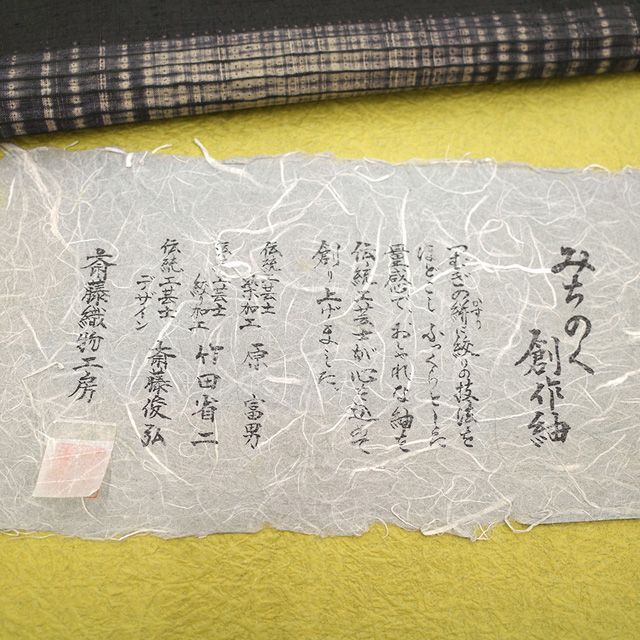 みちのく
創作紬
つむぎの絣に絞りの技法を
かすり
ほどこしふっくらとした
量感で、おしゃれな紬を
伝統工芸士が心を込めて
創り上げました
伝統工芸士
糸加工 原 富男
伝統工芸士
絞り加工 竹田省二
伝統工芸士
デザイン 斎藤俊弘
斎藤織物工房